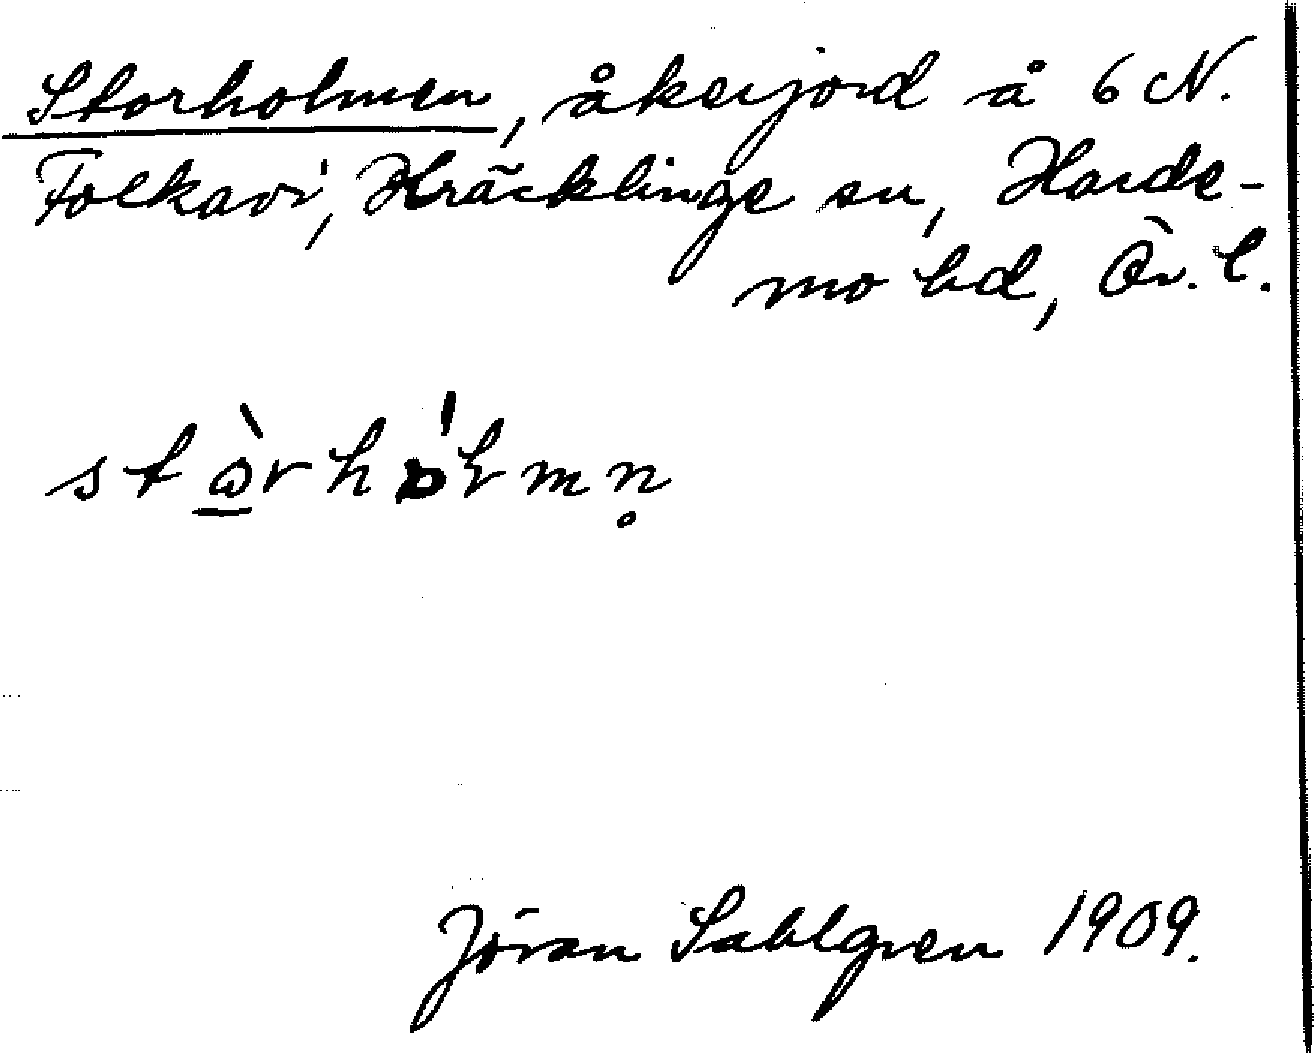 Storholmen, åkerjord å 6 N.
Folkavi, Kräcklinge sn, Harde-
mo hd, Ör. l.
stὼ̲rhólmn̥
Jöran Sahlgren 1909.